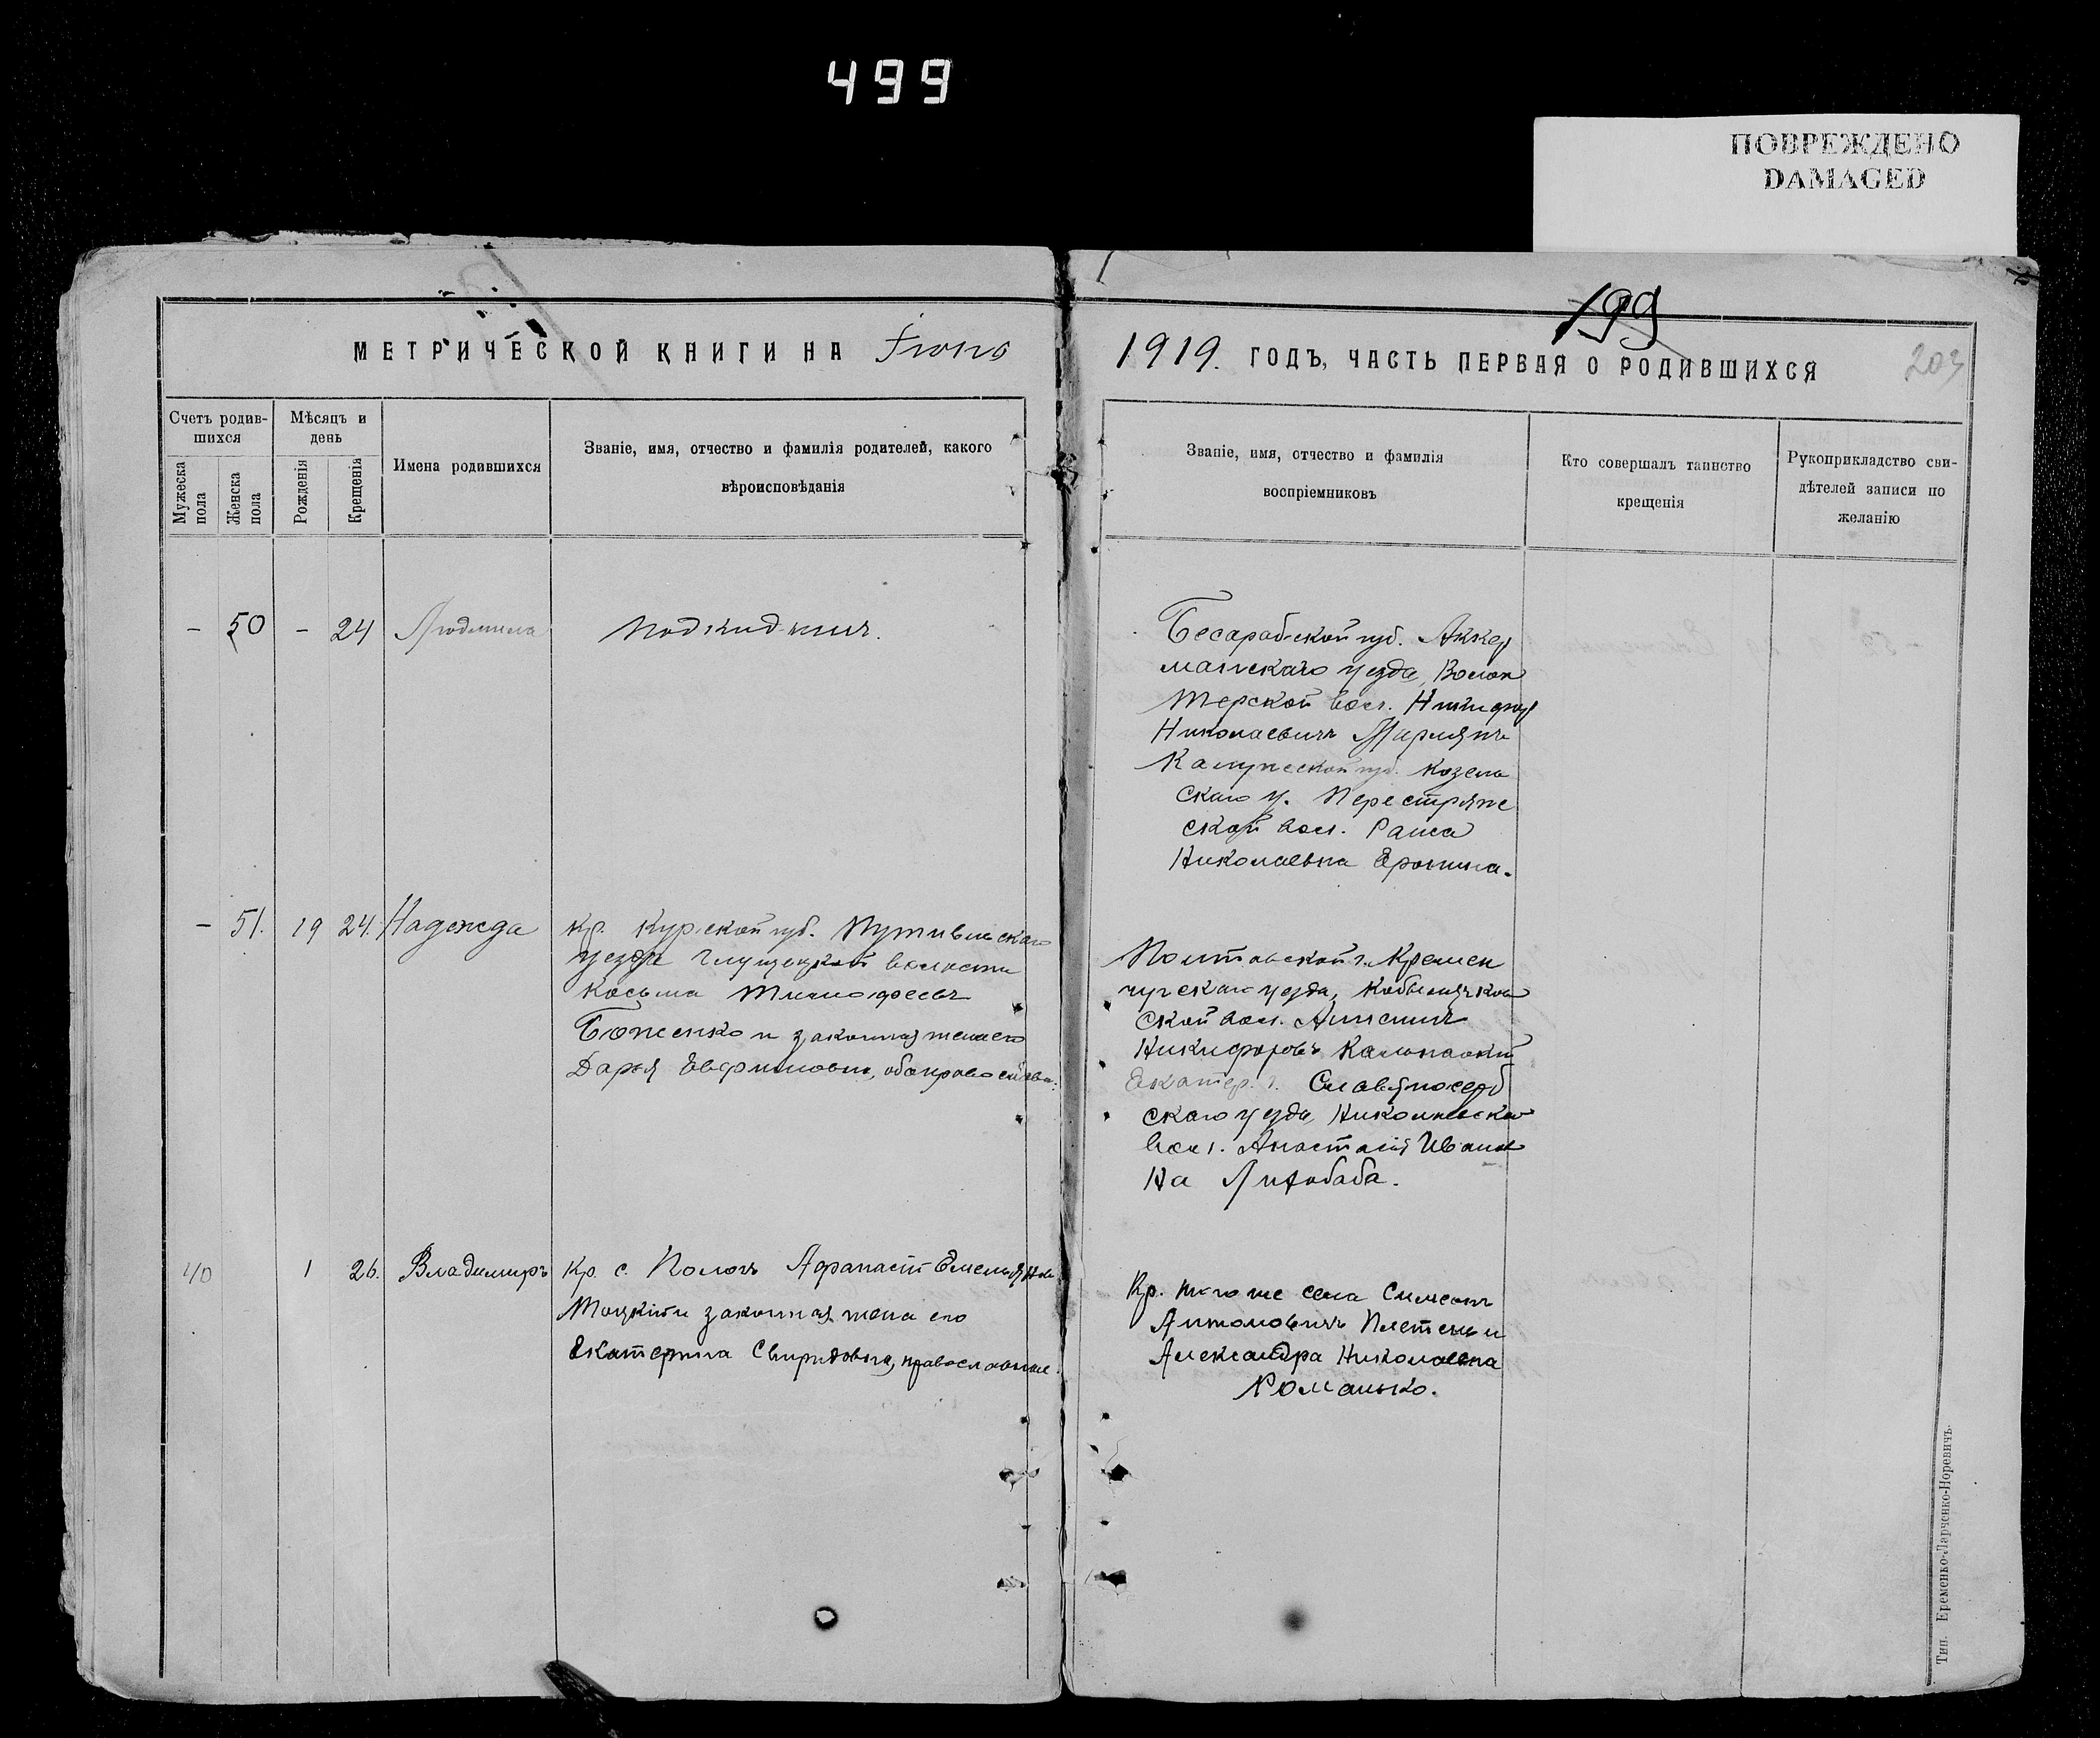 499
ПОВРЕЖДЕНО
DAMAGED
199
203
МЕТРИЧЕСКОЙ КНИГИ НА Iюнь
1919. ГОДЪ, ЧАСТЬ ПЕРВАЯ О РОДИВШИХСЯ
Счетъ родив-
шихся
Мужеска
пола
Женска
пола
Мѣсяцъ и
день
Рожденія
Крещенія
Имена родившихся
Званіе, имя, отчество и фамилія родителей, какого
вѣроисповѣданія
Званіе, имя, отчество и фамилія
воспріемниковъ
Кто совершалъ таинство
крещенія
Рукоприкладство сви-
дѣтелей записи по
желанію
- 50 - 24 Людмила
Подкидышъ.
Бесарабской губ. Аккер
манскаго уезда, Волон
терской вол.
Николаевичъ
Калужской губ. Козель
скаго у.
ской вол. Раиса
Николаевна Еронина.
- 51. 19 24. Надежда
Кр. Курской губ. Путивльскаго
уезда Глушецкой волости
Косьма Тимофеевъ
Боженко и законная жена его
Дарья
Полтавской г. Кремен
чугскаго уезда,
ской вол.
Никифоровъ
Екатер. г. Славяносерб
скаго уезда,
вол. Анастасія Иванов
на
40 1 26. Владимиръ
Кр. с. Пологъ Афанасій Емельянов
законная жена его
Екатерина Свиридовна, православные.
Кр. того же села Симеонъ
Антоновичъ и
Александра Николаевна
Романько.
Тип. Еременко-Ларченко-Норевичъ.